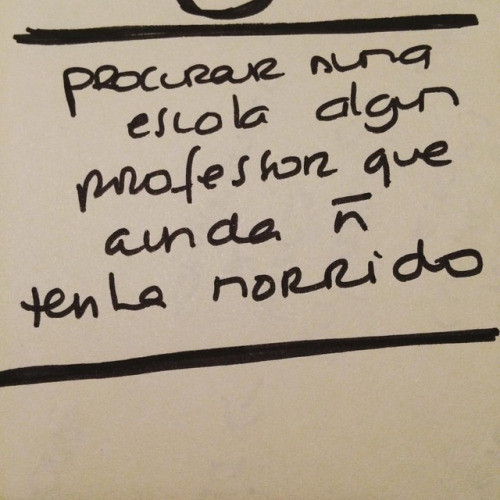 procurar numa
escola algun
professor que
ainda n̄
tenha morrido